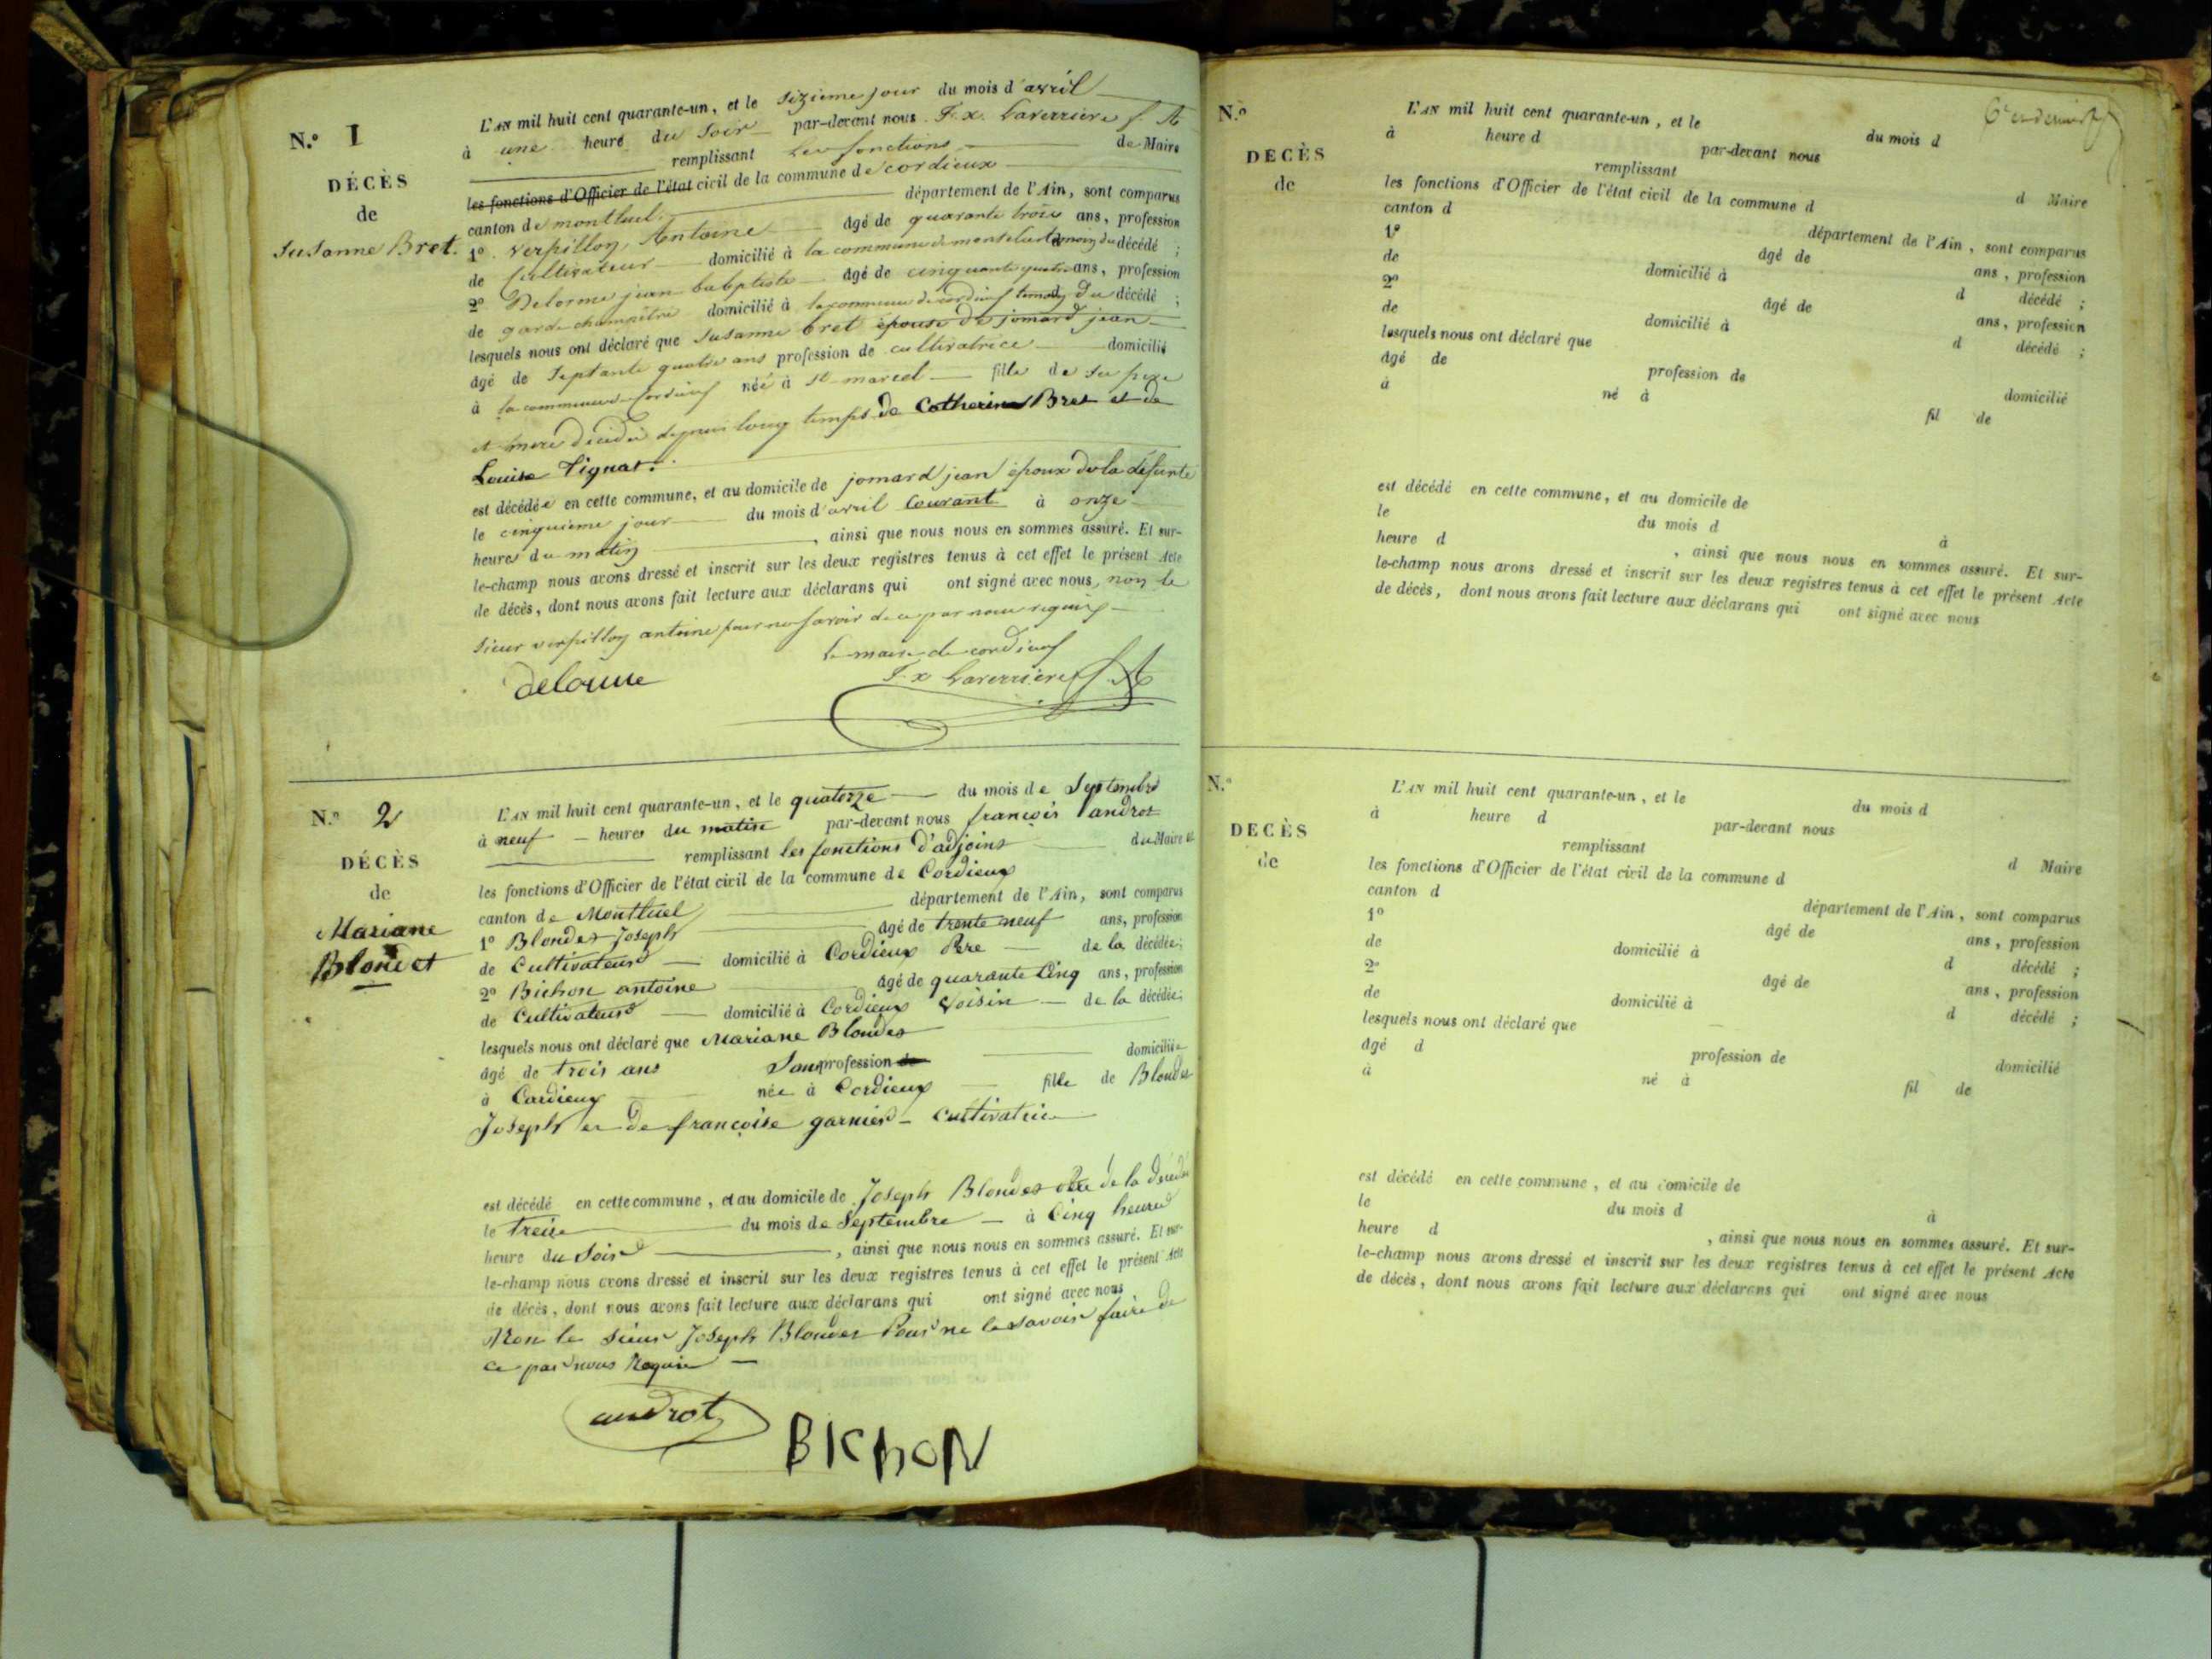 N.º I
DÉCÈS
de
Susanne Bret.
L'AN mil huit cent quarante-un, et le sizieme jour du mois d'avril
à une heure du Soir par-devant nous F.x. Laverriere f. A
remplissant Les fonctions de Maire
les fonctions d'Officier de l'état civil de la commune de cordieux
canton de montluel. département de l'Ain, sont comparus
1º. Verpilloy, Antoine âgé de quarante trois ans, profession
de Cultivateur domicilié à la commune de monteluel temoin du décédé ;
2º Delorme jean babptiste âgé de cinquante quatre ans, profession
de garde champêtre domicilié à la commune de cordieux temoin Du décédé ;
lesquels nous ont déclaré que Susanne bret épouse de jomard jean
âgé de Septante quatre ans profession de cultivatrice domicilié
à la commune de Cordieux née à St marcel fille de Su pere
et mere décédés depuis long temps de Catherin Bret et de
Louise Vignat.
est décédée en cette commune, et au domicile de jomard jean époux de la défunte
le cinquieme jour du mois d'avril Courant à onze
heures du matin , ainsi que nous nous en sommes assuré. Et sur-
le-champ nous avons dressé et inscrit sur les deux registres tenus à cet effet le présent Acte
de décès, dont nous avons fait lecture aux déclarans qui ont signé avec nous, non le
Sieur verpilloy antoine pour ne savoir de ce par nous requis
Le maire de cordieux
delorme F. x Laverriere f. A
N.º 2
DÉCÈS
de
Mariane
Blondet
L'AN mil huit cent quarante-un, et le quatorze du mois de Septembre
à neuf heures du matin par-devant nous françois androt
remplissant les fonctions d'adjoint du Maire et
les fonctions d'Officier de l'état civil de la commune de Cordieux
canton de Montluel département de l'Ain, sont comparus
1º Blondet Joseph âgé de trente neuf ans, profession
de Cultivateur domicilié à Cordieux Pere de la décédée;
2º Bichon antoine âgé de quarante Cinq ans, profession
de Cultivateur domicilié à Cordieux Voisin de la décédée;
lesquels nous ont déclaré que Mariane Blondet
âgé de trois ans Sans profession de domiciliée
à Cordieux née à Cordieux fille de Blondet
Joseph et de françoise garnier - Cultivatrice
est décédé en cette commune, et au domicile de Joseph Blondet Pere de la décédée
le treize du mois de Septembre à Cinq heures
heure du Soir , ainsi que nous nous en sommes assuré. Et sur-
le-champ nous avons dressé et inscrit sur les deux registres tenus à cet effet le présent Acte
de décès, dont nous avons fait lecture aux déclarans qui ont signé avec nous
Non le Sieur Joseph Blondet Pour ne le savoir faire de
ce par nous Requis
androt
BICHON
N.º
DECÈS
de
L'AN mil huit cent quarante-un, et le du mois d
à heure d par-devant nous
remplissant d Maire
les fonctions d'Officier de l'état civil de la commune d
canton d département de l'Ain, sont comparus
1º âgé de ans, profession
de domicilié à d décédé ;
2º âgé de ans, profession
de domicilié à d décédé ;
lesquels nous ont déclaré que
âgé de profession de domicilié
à né à fil de
est décédé en cette commune, et au domicile de
le du mois d à
heure d , ainsi que nous nous en sommes assuré. Et sur-
le-champ nous avons dressé et inscrit sur les deux registres tenus à cet effet le présent Acte
de décès, dont nous avons fait lecture aux déclarans qui ont signé avec nous
N.º
DECÈS
de
L'AN mil huit cent quarante-un, et le du mois d
à heure d par-devant nous
remplissant d Maire
les fonctions d'Officier de l'état civil de la commune d
canton d département de l'Ain, sont comparus
1º âgé de ans, profession
de domicilié à d décédé ;
2º âgé de ans, profession
de domicilié à d décédé ;
lesquels nous ont déclaré que
âgé d profession de domicilié
à né à fil de
est décédé en cette commune, et au domicile de
le du mois d à
heure d , ainsi que nous nous en sommes assuré. Et sur-
le-champ nous avons dressé et inscrit sur les deux registres tenus à cet effet le présent Acte
de décès, dont nous avons fait lecture aux déclarans qui ont signé avec nous